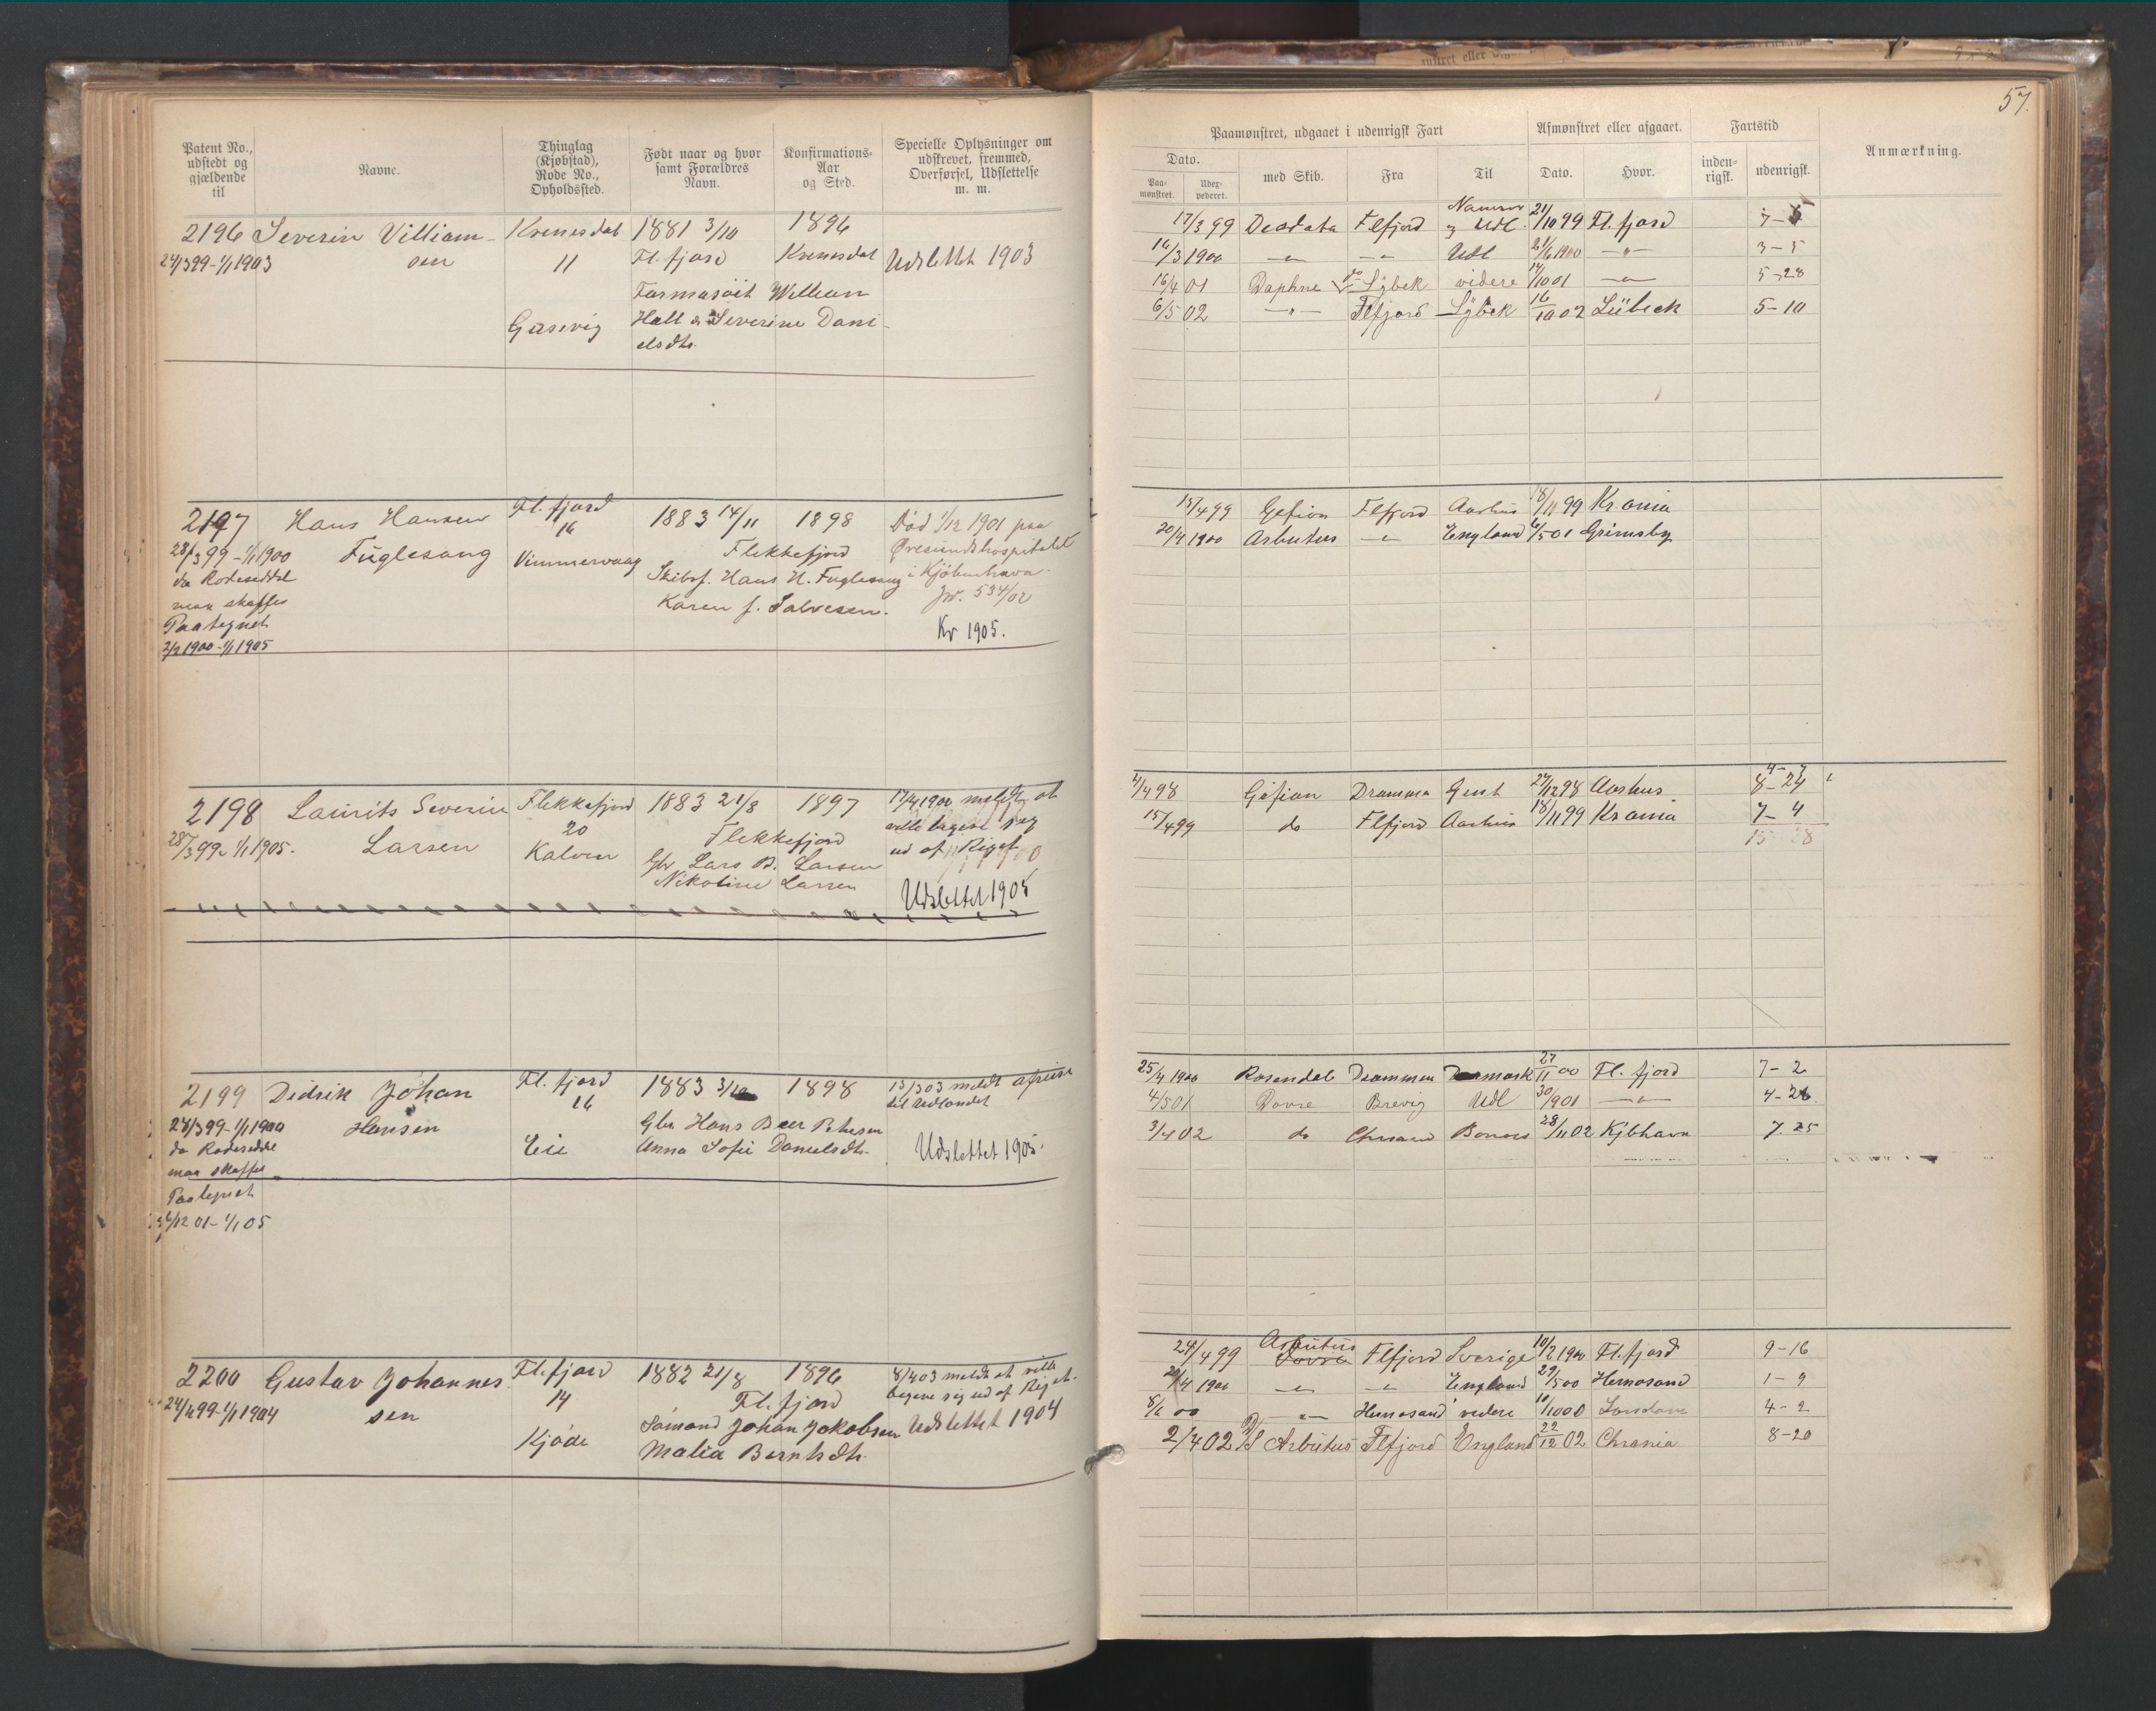 57.
Patent No., udstedt og gjældende til
Navne.
Thinglag (Kjøbstad), Rode No., Opholdssted.
Født naar og hvor samt Forældres Navn.
Konfirmations-Aar og Sted.
Specielle Oplysninger om udskrevet, fremmed, Overførsel, Udslettelse m. m.
Paamønstret, udgaaet i udenrigsk Fart
Afmønstret eller afgaaet.
Fartstid
Anmærkning.
Dato.
Paamønstret.
Udexpederet.
med Skib.
Fra
Til
Dato.
Hvor.
indenrigsk.
udenrigsk.
2196 Severin Villiam- Krenesdal 1881 3/10 1896
24/3 99-1/1 1903 sen 11 Fl.fjord Krenesdal Udslettet 1903
William
Gaasevig Hall & Severine Dani-
elsdtr.
17/3 99 Deodata Flfjord & Udl. 21/10 99 Fl.fjord
16/3 1900 —"— —"— Udl 21/6 1900 —"— 3-5
16/4 01 Daphne Lybek videre 14/10 01 —"— 5-28
6/5 02 —"— Flfjord Lybek 16/10 02 Lübeck 5-10
2197 Hans Hansen Fl.fjord 1883 14/11 1898 Død 1/12 1901 paa
28/3 99-1/1 1900 Fuglesang 16 Flekkefjord Øresundshospitalet
da Rodeseddel Vimmervaag Skibsf. Hans H. Fuglesang i Kjøbenhavn.
maa skaffes Karen f. Salvesen. Jr. 534/02
Paategnet Kr 1905.
2/2 1900-1/1 1905
15/4 99 Gefion Flfjord Aarhus 18/11 99 Krania
20/4 1900 Arbutus —"— England 6/5 01 Grimsby
2198 Laurits Severin Flekkefjord 1883 21/8 1897 17/4 1900 meldt at
28/3 99-1/1 1905. Larsen 20 Flekkefjord ville begive sig
Kalven Gbr Lars B. Larsen ud af Riget
Nikoline Larsen
Udslettet 1905
1/4 98 Gefion Drammen Gent 27/12 98 Aarhus 8-24
15/4 99 do Flfjord Aarhus 18/11 99 Krania 7-4
15-28
2199 Didrik Johan Fl.fjord 1883 3/10 1898 13/3 03 meldt afreise
28/3 99-1/1 1900 Hansen 16 Gbr Hans Beer Petersen til Udlandet
da Rodeseddel Eie Anna Sofie Danielsdtr. Udslettet 1905.
maa skaffes
Paategnet
6/12 01-1/1 05
25/4 1900 Rosendal Drammen Danmark 27/11 00 Fl.fjord 7-2
4/5 01 Dovre Brevig Udl 30/9 01 —"— 4-26
3/4 02 do Chrsand Bonnes 28/11 02 Kjbhavn 7.25
2200 Gustav Johannes- Fl.fjord 1882 21/8 1896 8/4 03 meldt at ville
24/4 99-1/1 1904 sen 14 Fl.fjord begive sig ud af Riget.
Kjøde Sømand Johan Jakobsen Udslettet 1904
Malia Berntsdtr.
24/4 99 Arbutus Flfjord Sverige 10/2 1900 Fl.fjord 9-16
20/4 1900 —"— —"— England 29/5 00 Hernosand 1-9
8/6 00 —"— Hernosand videre 10/10 00 London 4-2
2/4 02 Arbutus Flfjord England 22/12 02 Chrania 8-20